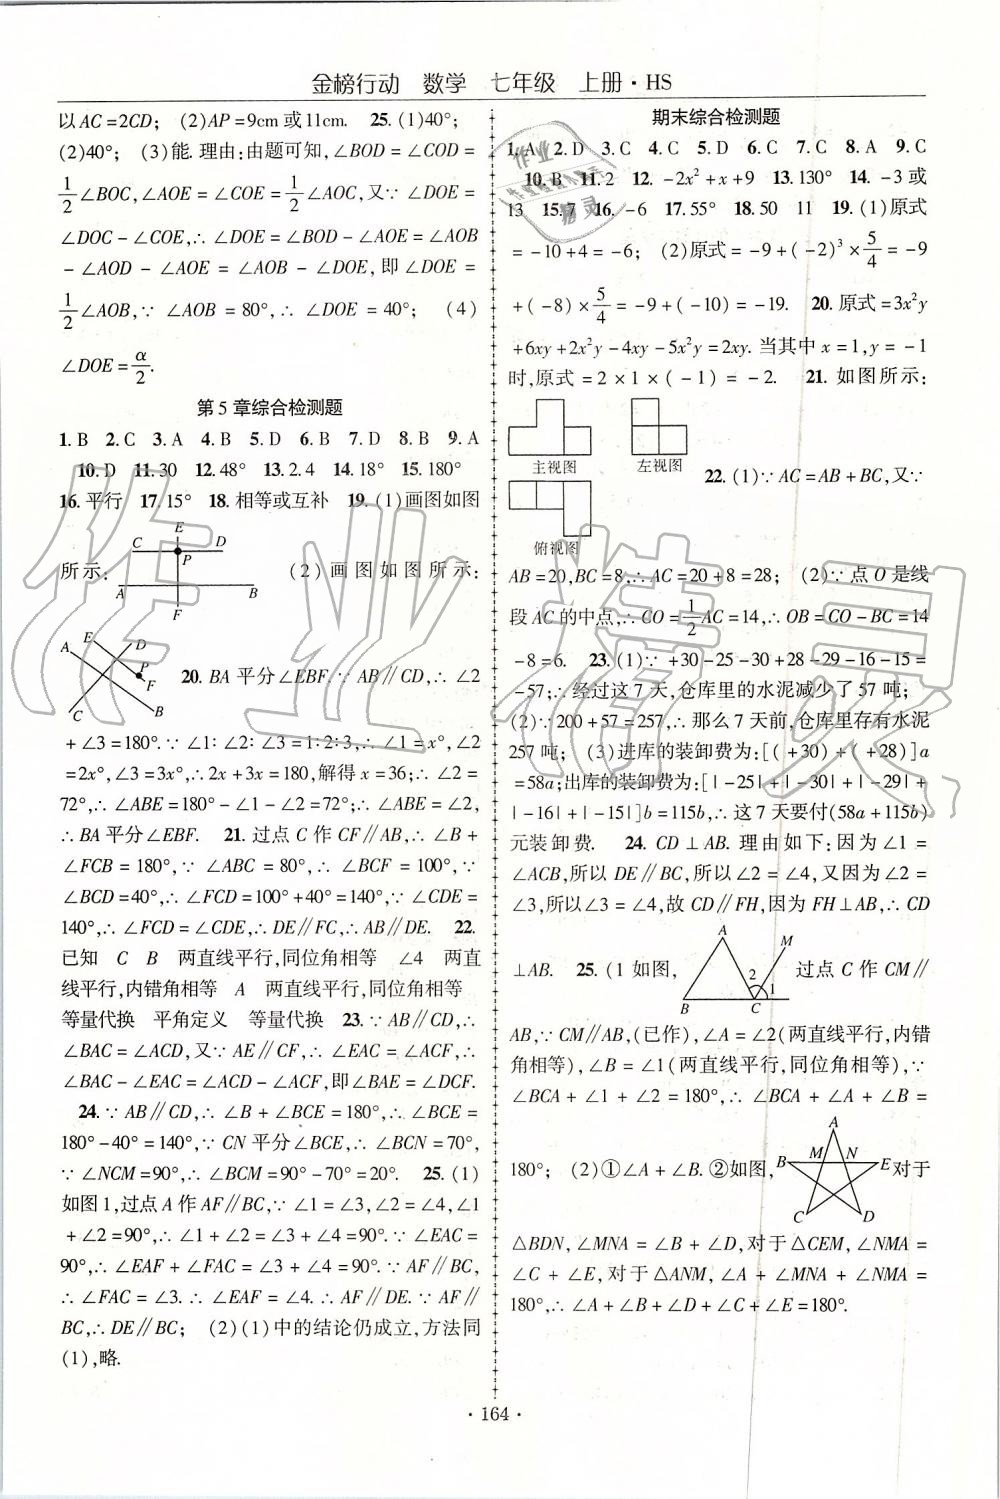 金榜行动 数学 七年级 上册·HS
以AC=2CD; (2)AP=9cm或11cm. 25. (1)40°;
(2)40°; (3)能. 理由:由题可知,∠BOD=∠COD=
1/2∠BOC,∠AOE=∠COE=1/2∠AOC,又∵∠DOE=
∠DOC-∠COE,∴∠DOE=∠BOD-∠AOE=∠AOB
-∠AOD-∠AOE=∠AOB-∠DOE,即∠DOE=
1/2∠AOB,∵∠AOB=80°,∴∠DOE=40°; (4)
∠DOE=α/2.
第5章综合检测题
1. B 2. C 3. A 4. B 5. D 6. B 7. D 8. B 9. A
10. D 11. 30 12. 48° 13. 2.4 14. 18° 15. 180°
16. 平行 17. 15° 18. 相等或互补 19. (1)画图如图
所示: (2)画图如图所示:
E
C D
P
A B
F
E D
A
P
F
C B
20. BA平分∠EBF. ∵AB∥CD,∴∠2
+∠3=180°. ∵∠1∶∠2∶∠3=1∶2∶3,∴∠1=x°,∠2
=2x°,∠3=3x°,∴2x+3x=180,解得x=36;∴∠2=
72°,∴∠ABE=180°-∠1-∠2=72°;∴∠ABE=∠2,
∴BA平分∠EBF. 21. 过点C作CF∥AB,∴∠B+
∠FCB=180°,∵∠ABC=80°,∴∠BCF=100°,∵
∠BCD=40°,∴∠FCD=100°+40°=140°,∵∠CDE=
140°,∴∠FCD=∠CDE,∴DE∥FC,∴AB∥DE. 22.
已知 C B 两直线平行,同位角相等 ∠4 两直
线平行,内错角相等 A 两直线平行,同位角相等
等量代换 平角定义 等量代换 23. ∵AB∥CD,∴
∠BAC=∠ACD,又∵AE∥CF,∴∠EAC=∠ACF,∴
∠BAC-∠EAC=∠ACD-∠ACF,即∠BAE=∠DCF.
24. ∵AB∥CD,∴∠B+∠BCE=180°,∴∠BCE=
180°-40°=140°,∵CN平分∠BCE,∴∠BCN=70°,
∵∠NCM=90°,∴∠BCM=90°-70°=20°. 25. (1)
如图1,过点A作AF∥BC,∵∠1=∠3,∠2=∠4,∠1
+∠2=90°,∴∠1+∠2=∠3+∠4=90°. ∵∠EAC=
90°,∴∠EAF+∠FAC=∠3+∠4=90°. ∵AF∥BC,
∴∠FAC=∠3. ∴∠EAF=∠4. ∴AF∥DE. ∵AF∥
BC,∴DE∥BC; (2)(1)中的结论仍成立,方法同
(1),略.
期末综合检测题
1. A 2. D 3. C 4. C 5. D 6. C 7. C 8. A 9. C
10. B 11. 2 12. -2x²+x+9 13. 130° 14. -3或
13 15. 7 16. -6 17. 55° 18. 50 11 19. (1)原式
=-10+4=-6; (2)原式=-9+(-2)³×5/4=-9
+(-8)×5/4=-9+(-10)=-19. 20. 原式=3x²y
+6xy+2x²y-4xy-5x²y=2xy. 当其中x=1,y=-1
时,原式=2×1×(-1)=-2. 21. 如图所示:
主视图 左视图
俯视图
22. (1)∵AC=AB+BC,又∵
AB=20,BC=8,∴AC=20+8=28; (2)∵点O是线
段AC的中点,∴CO=1/2AC=14,∴OB=CO-BC=14
-8=6. 23. (1)∵+30-25-30+28-29-16-15=
-57;∴经过这7天,仓库里的水泥减少了57吨;
(2)∵200+57=257,∴那么7天前,仓库里存有水泥
257吨; (3)进库的装卸费为:[(+30)+(+28)]a
=58a;出库的装卸费为:[|-25|+|-30|+|-29|+
|-16|+|-15|]b=115b,∴这7天要付(58a+115b)
元装卸费. 24. CD⊥AB. 理由如下:因为∠1=
∠ACB,所以DE∥BC,所以∠2=∠4,又因为∠2=
∠3,所以∠3=∠4,故CD∥FH,因为FH⊥AB,∴CD
⊥AB. 25. (1如图, 过点C作CM∥
A M
2
1
B C
AB,∵CM∥AB,(已作),∠A=∠2(两直线平行,内错
角相等),∠B=∠1(两直线平行,同位角相等),∵
∠BCA+∠1+∠2=180°,∴∠BCA+∠A+∠B=
180°; (2)①∠A+∠B. ②如图, 对于
A
M N
B E
C D
△BDN,∠MNA=∠B+∠D,对于△CEM,∠NMA=
∠C+∠E,对于△ANM,∠A+∠MNA+∠NMA=
180°,∴∠A+∠B+∠D+∠C+∠E=180°.
·164·
作业精灵